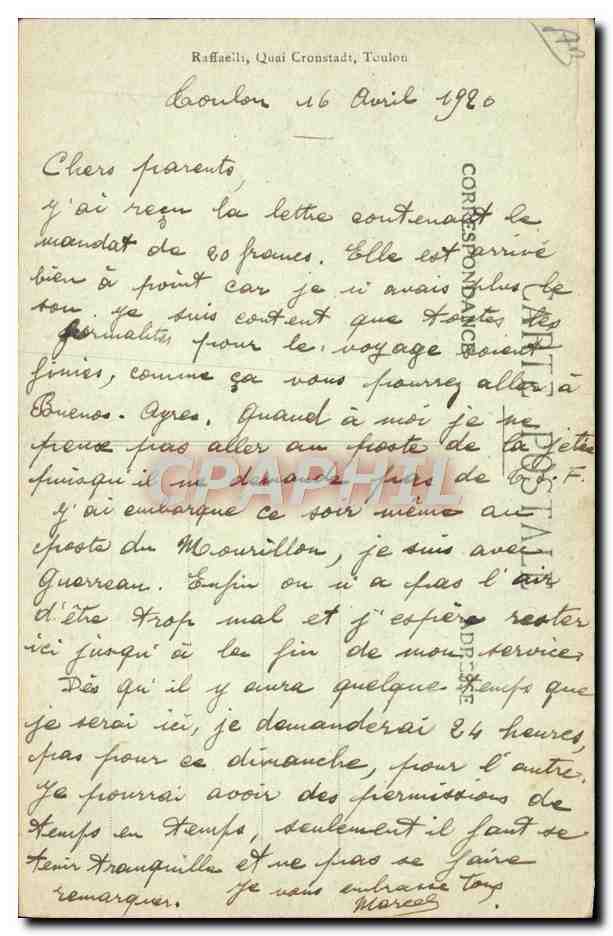 Raffaelli, Quai Cronstadt, Toulon
AB
Toulon 16 Avril 1920
CORRESPONDANCE
CARTE POSTALE
ADRESSE
Chers parents,
j'ai reçu la lettre contenant le
mandat de 20 francs. Elle est arrivé
bien à point car je n'avais plus le
sou. Je suis content que toutes les
formalités pour le voyage soient
finies, comme ça vous pourrez aller à
Buenos-Ayres. Quand à moi je ne
peux pas aller au poste de la jetée
puisqu'il ne demande pas de T.S.F.
J'ai embarqué ce soir même au
poste du Mourillon, je suis avec
Guerreau. Enfin on n'a pas l'air
d'être trop mal et j'espère rester
ici jusqu'à la fin de mon service.
Dès qu'il y aura quelque temps que
je serai ici, je demanderai 24 heures,
pas pour ce dimanche, pour l'autre.
Je pourrai avoir des permissions de
temps en temps, seulement il faut se
tenir tranquille et ne pas se faire
remarquer. Je vous embrasse tous.
Marcel
CPAPHIL